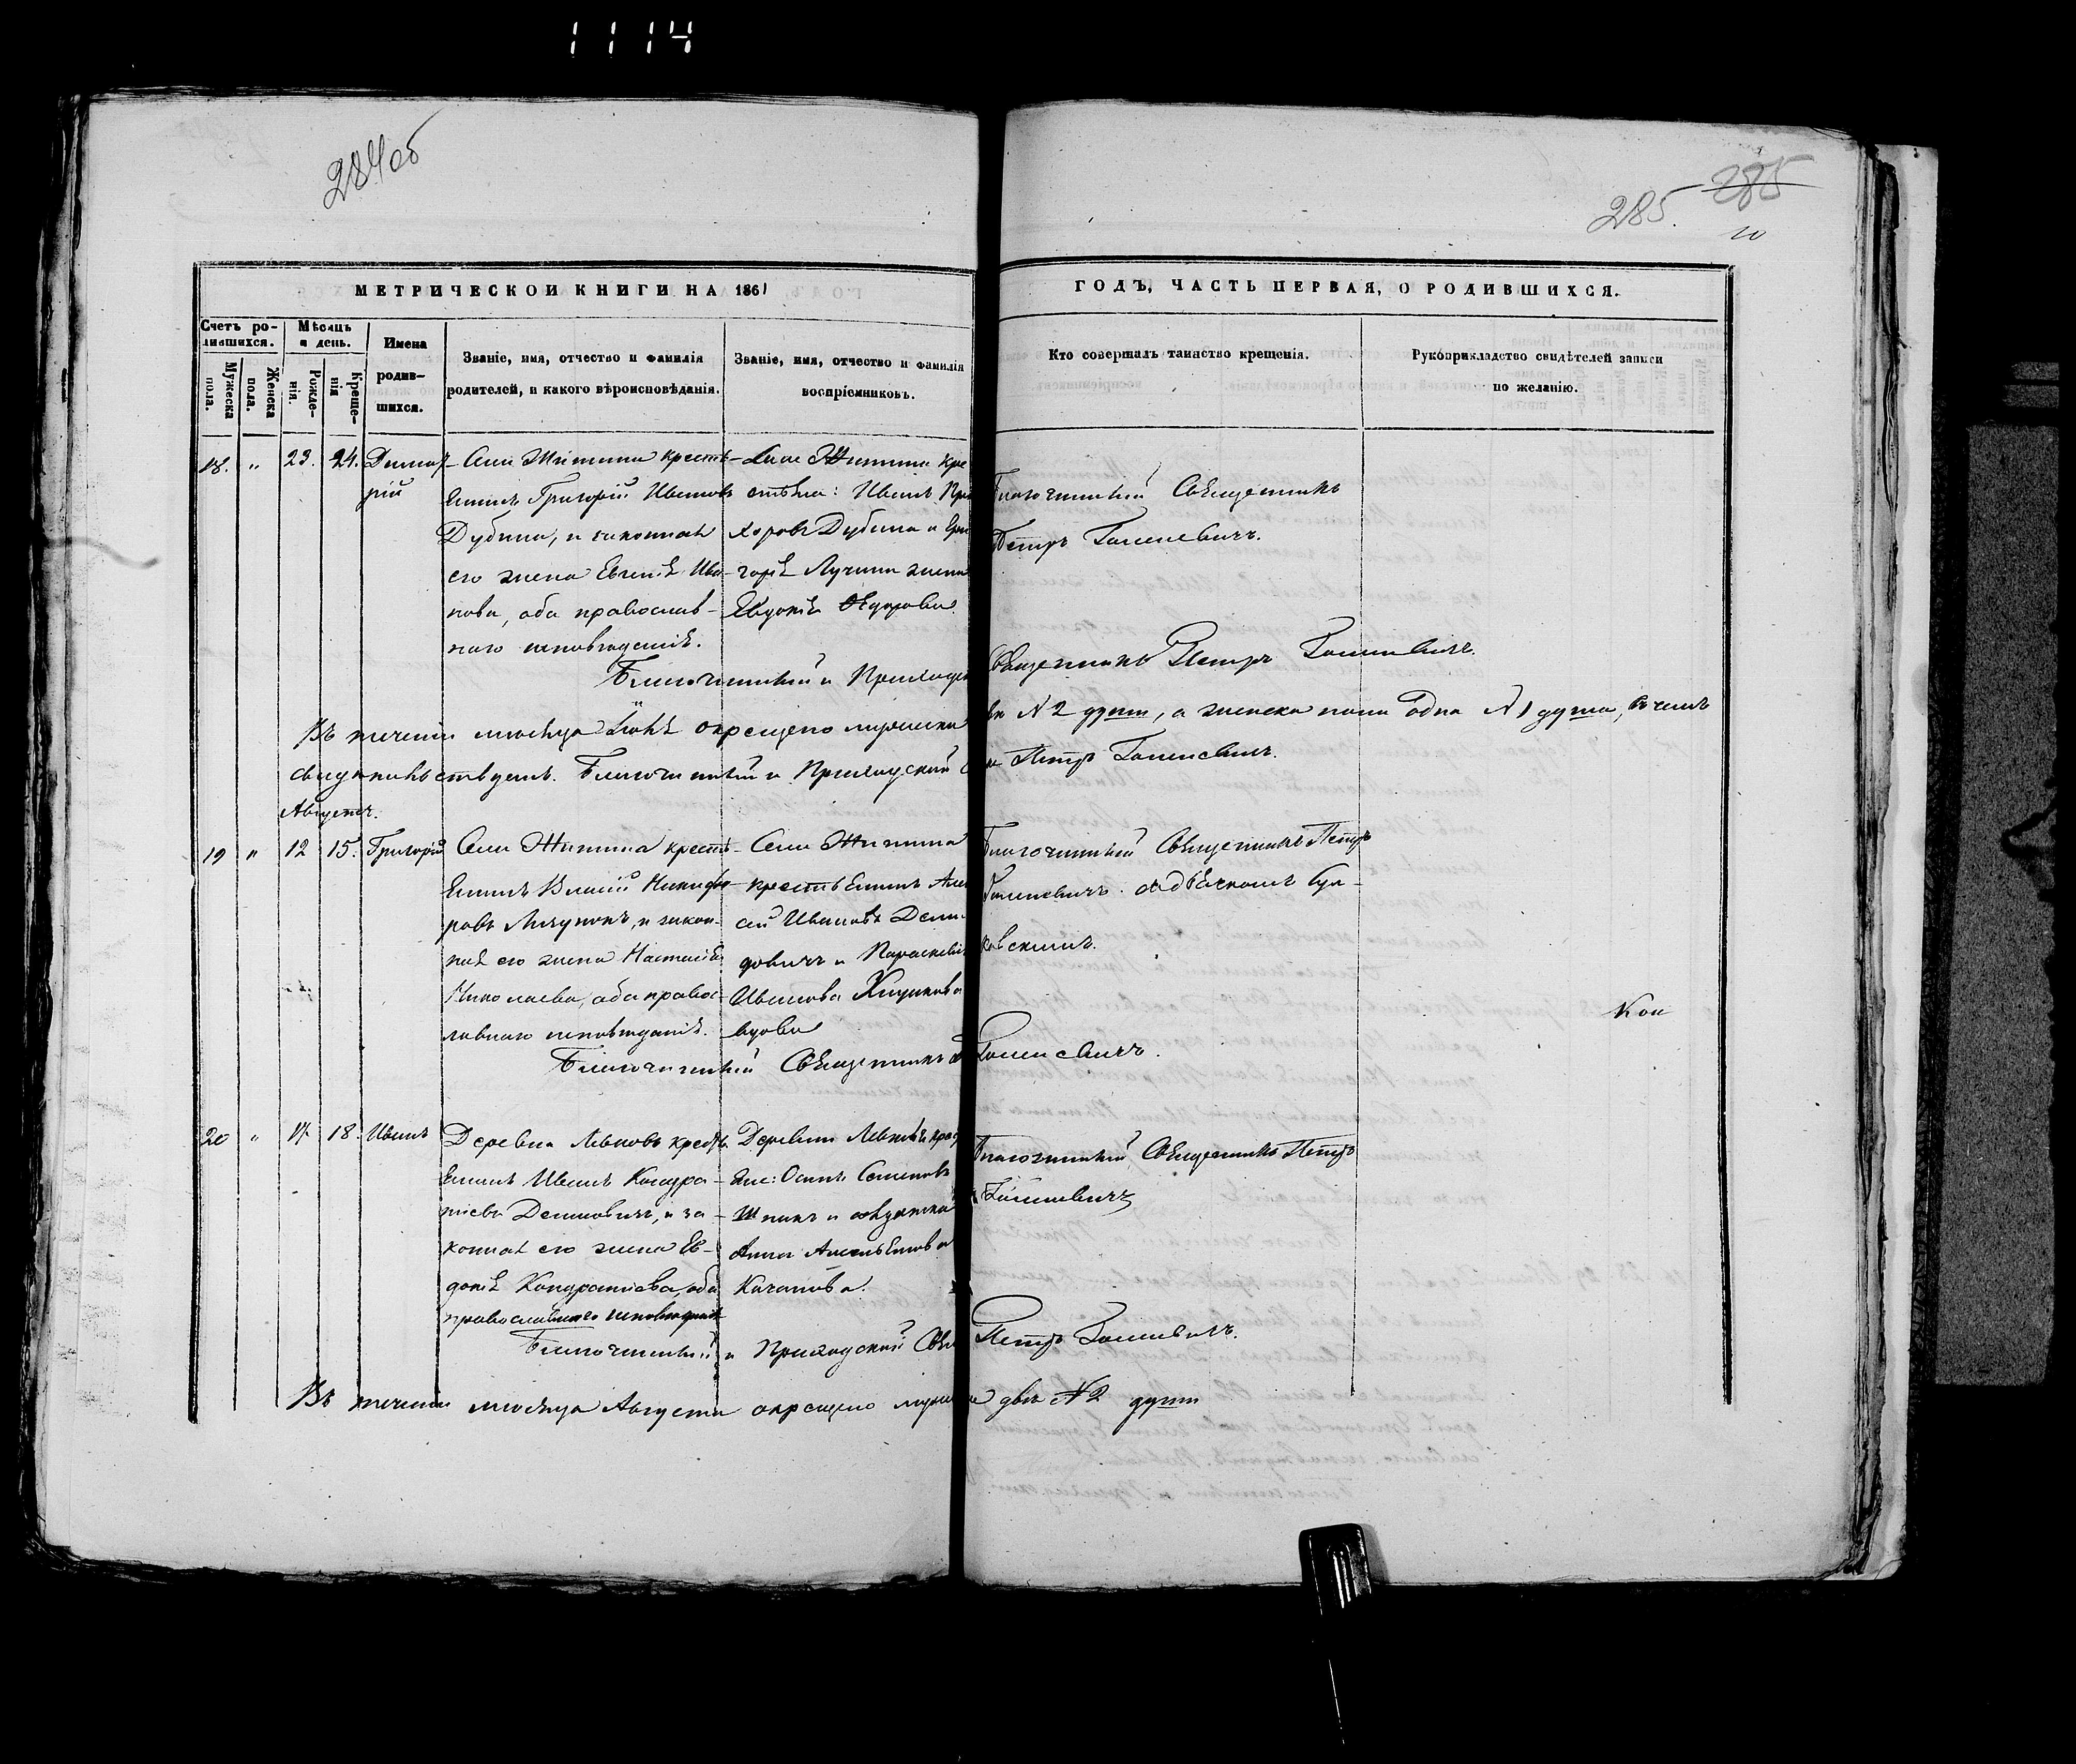 1114
284об
285. 285
10
МЕТРИЧЕСКОЙ КНИГИ НА 1861
ГОДЪ, ЧАСТЬ ПЕРВАЯ, О РОДИВШИХСЯ.
Счетъ ро-
дившихся.
Мужеска
пола.
Женска
пола.
Мѣсяцъ
и день.
Рожде-
нія.
Креще-
нія
Имена
родив-
шихся.
Званіе, имя, отчество и фамилія
родителей, и какого вѣроисповѣданія.
Званіе, имя, отчество и фамилія
воспріемниковъ.
Кто совершалъ таинство крещенія.
Рукоприкладство свидѣтелей записи
по желанію.
18. " 23. 24.
Димит-
рій
Села Житина кресть-
янинъ Григорій Ивановъ
Дубина, и законная
его жена Евгенія Ива-
нова, оба православ-
наго исповѣданія.
Села Житина кре
стьяне: Иванъ Про
хоровъ Дубина и Гри
горія Лучины жена
Евдокія Ѳедорова.
Благочинный Священникъ
Петръ
Благочинный и Приходск
Священникъ Петръ
Въ теченіи мѣсяца Іюля окрещено мужеска
ва N 2 души, а женска пола одна N 1 душа, въ чемъ
свидѣтельствуемъ. Благочинный и Приходскій С
Петръ
Августъ.
19 " 12 15.
Григорій
Села Житина кресть-
янинъ Власій Никифо-
ровъ и закон-
ная его жена Настасія
Николаева, оба правос-
лавнаго исповѣданія.
Села Житина
крестьянинъ Алек
сѣй Ивановъ Деми-
довичъ и Параскевія
Иванова
вдова
Благочинный Священникъ Петръ
съ дьячкомъ Бул-
ковскимъ.
Кон
Благочинный Священникъ
20 " 17 18.
Иванъ
Деревни Левковъ крест
янинъ Иванъ Кондра-
тіевъ и за-
конная его жена Ев-
докія Кондратіева, оба
православнаго исповѣданія
Деревни Левковъ крес
яне: Осипъ Семеновъ
Шпакъ и дѣвушка
Анна Емельянова
Качанова.
Благочинный Священникъ Петръ
Благочинный и Приходскій Свя
Петръ
Въ теченіи мѣсяца Августа окрещено мужеска
двѣ N 2 души